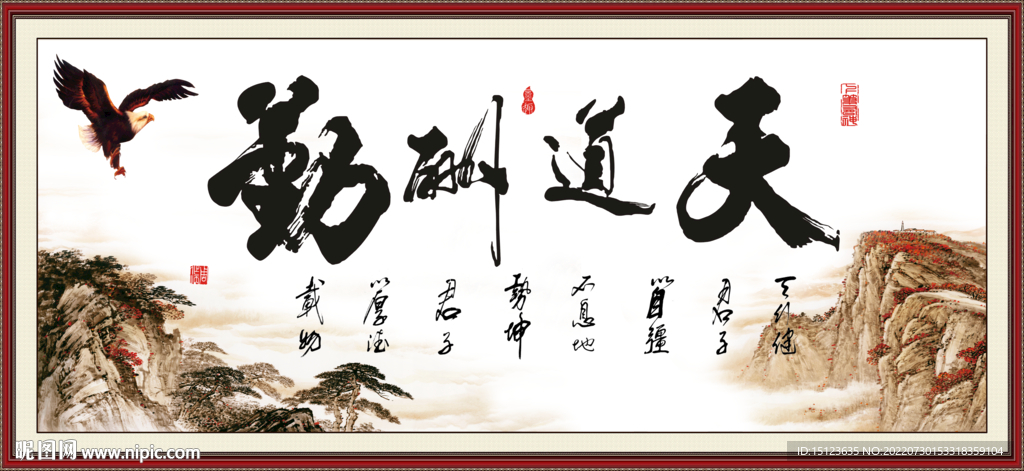 天道酬勤
天行健
君子
以自疆
不息地
勢坤
君子
以厚德
載物
昵图网 www.nipic.com
ID:15123635 NO:20220730153318359104